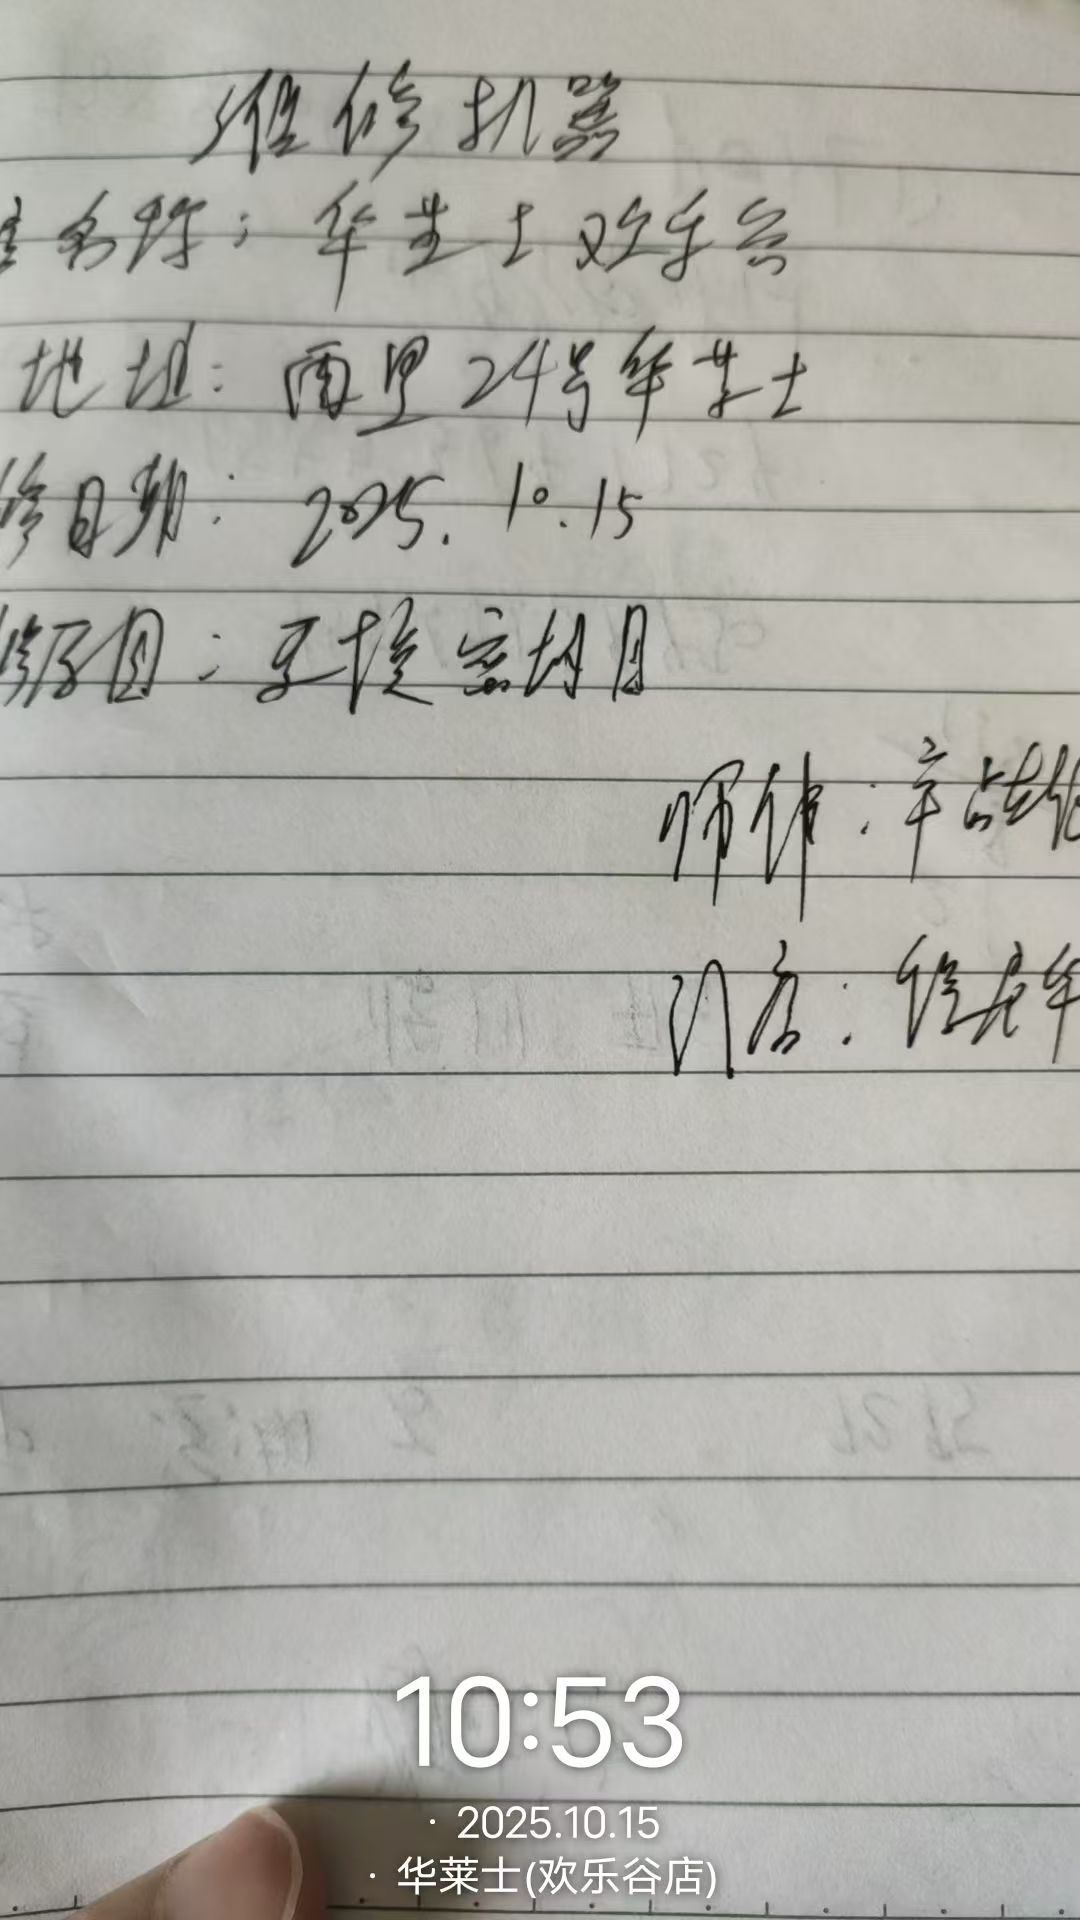 维修机器
名称：华莱士欢乐谷
地址：西里24号华莱士
修日期：2025.10.15
目：更换密封
师傅：辛
门店：徐
10:53
· 2025.10.15
· 华莱士(欢乐谷店)